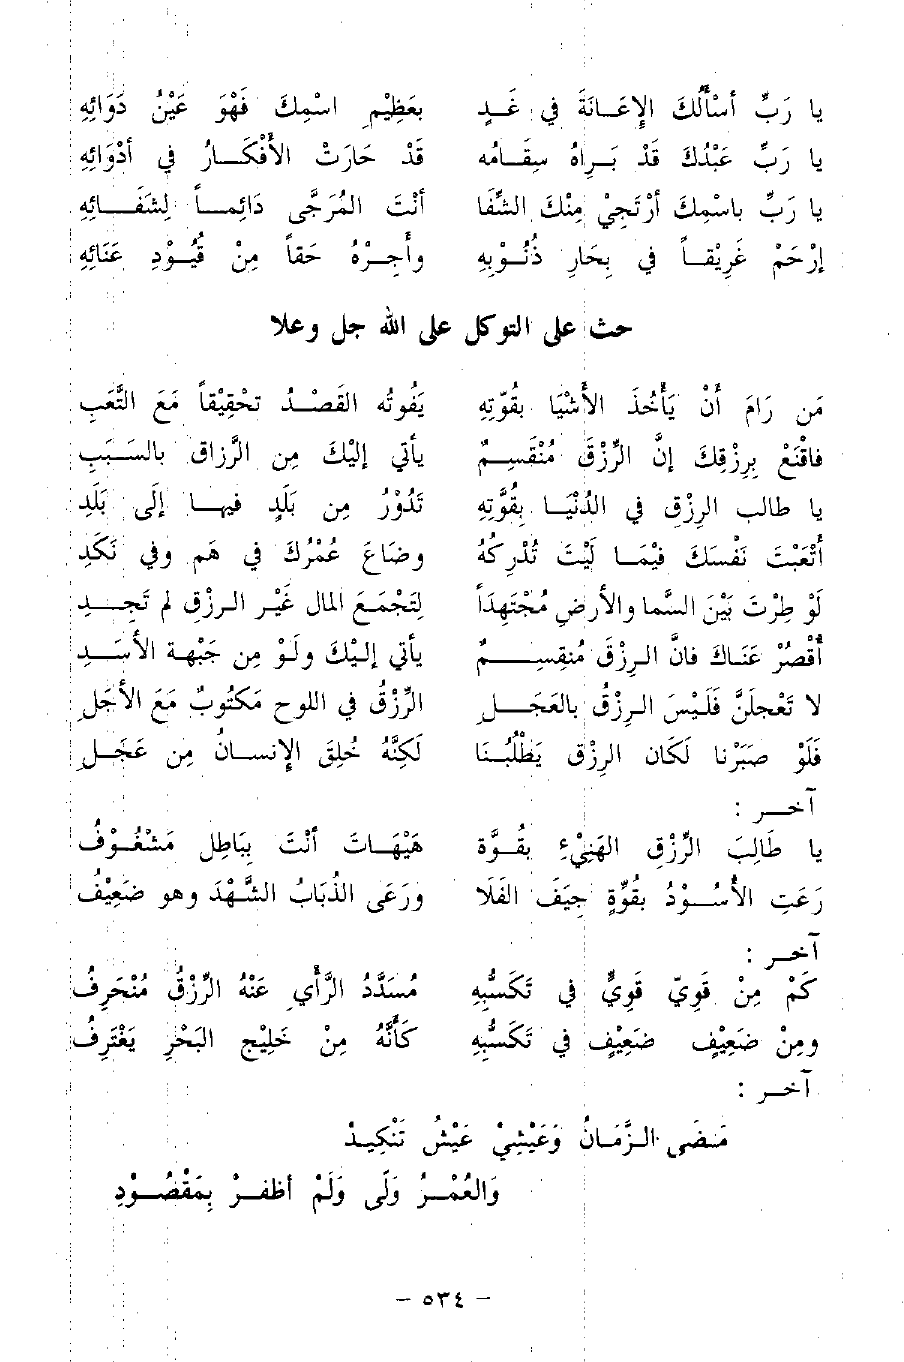 يا رَبِّ أسْأَلُكَ الإِعَانَةَ في غَدٍ بعَظِيْمِ اسْمِكَ فَهْوَ عَيْنُ دَوَائِهِ
يا رَبِّ عَبْدُكَ قَدْ بَراهُ سِقَامُه قَدْ حَارَتْ الأَفْكَارُ في أدْوَائِهِ
يا رَبِّ باسْمِكَ أرْتَجِيْ مِنْكَ الشِّفَا أنْتَ المُرَجَّى دَائِماً لِشَفَائِهِ
إرْحَمْ غَرِيْقاً في بِحَارِ ذُنُوْبِهِ وأَجِرْهُ حَقاً مِنْ قُيُوْدِ عَنَائِهِ
حث على التوكل على الله جل وعلا
مَن رَامَ أَنْ يَأْخُذَ الأَشْيَا بقُوّتِهِ يَفُوتُه القَصْدُ تحْقِيْقاً مَعَ التَّعَبِ
فاقْنَعْ بِرِزْقِكَ إنَّ الرِّزْقَ مُنْقَسِمٌ يأتي إلَيْكَ مِن الرَّزاق بالسَبَبِ
يا طالب الرِزْقِ في الدُنْيَا بِقُوَّتِهِ تَدُوْرُ مِن بَلَدٍ فيها إلَى بَلَدِ
أتْعَبْتَ نَفْسَكَ فيْمَا لَيْتَ تُدْرِكُهُ وضَاعَ عُمْرُكَ في هَم وفي نَكَدِ
لَوْ طِرْتَ بَيْنَ السَّما والأرضِ مُجْتَهِدَاً لِتَجْمَعَ المال غَيْر الرزْقِ لم تَجِدِ
أقْصُرْ عَنَاكَ فانَّ الرِزْقَ مُنقِسِمٌ يأتي إليْكَ ولَوْ مِن جَبْهةِ الأَسَدِ
لا تَعْجلَنَّ فَلَيْسَ الرِزْقُ بالعَجَلِ الرِّزْقُ في اللوح مَكتُوبٌ مَعَ الأَجَلِ
فَلَوْ صَبَرْنا لَكَان الرِزْق يَطْلُبُنَا لَكِنَّهُ خُلِقَ الإِنسانُ مِن عَجَلِ
آخر :
يا طَالِبَ الرِّزْقِ الهَنِيْءِ بقُوَّة هَيْهَاتَ أنْتَ بِبَاطِلٍ مَشْغُوْفُ
رَعَتِ الأُسُوْدُ بقُوِّةٍ جِيَفَ الفَلَا ورَعَى الذُبَابُ الشَّهْدَ وهو ضَعِيْفُ
آخر :
كَمْ مِنْ قَوِيّ قَوِيٍّ في تَكَسُّبِهِ مُسَدَّدُ الرَّأيِ عَنْهُ الرِّزْقُ مُنْحَرِفُ
ومِنْ ضَعِيْفٍ ضَعِيْفٍ في تَكسُّبِهِ كَأَنَّهُ مِنْ خَلِيْجِ البَحْرِ يَغْتَرِفُ
آخر :
مَضَى الزَّمَانُ وَعَيْشِيْ عَيْشُ تَنْكِيدْ
وَالعُمْرُ وَلَّى وَلَمْ أظفرْ بِمَقْصُوْدِ
- ٥٣٤ -